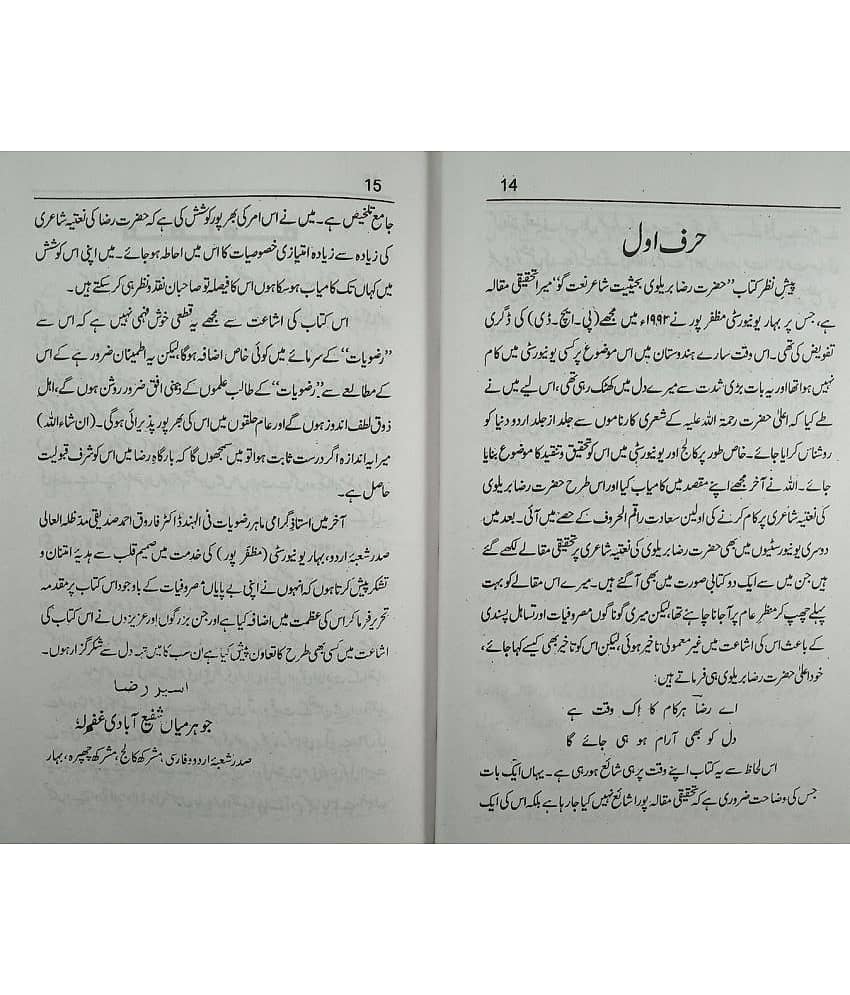 14
حرف اول
پیش نظر کتاب "حضرت رضا بریلوی بحیثیت شاعر نعت گو" میرا تحقیقی مقالہ
ہے، جس پر بہار یونیورسٹی مظفر پور نے ۱۹۹۲ء میں مجھے (پی۔ایچ۔ڈی) کی ڈگری
تفویض کی تھی۔ اس وقت سارے ہندوستان میں اس موضوع پر کسی یونیورسٹی میں کام
نہیں ہوا تھا اور یہ بات بڑی شدت سے میرے دل میں کھٹک رہی تھی، اس لیے میں نے
طے کیا کہ اعلیٰ حضرت رحمۃ اللہ علیہ کے شعری کارناموں سے جلد از جلد اردو دنیا کو
روشناس کرایا جائے۔ خاص طور پر کالج اور یونیورسٹی میں اس کو تحقیق و تنقید کا موضوع بنایا
جائے۔ اللہ نے آخر مجھے اپنے مقصد میں کامیاب کیا اور اس طرح حضرت رضا بریلوی
کی نعتیہ شاعری پر کام کرنے کی اولین سعادت راقم الحروف کے حصے میں آئی۔ بعد میں
دوسری یونیورسٹیوں میں بھی حضرت رضا بریلوی کی نعتیہ شاعری پر تحقیقی مقالے لکھے گئے
ہیں جن میں سے ایک دو کتابی صورت میں بھی آ گئے ہیں۔ میرے اس مقالے کو بہت
پہلے چھپ کر منظر عام پر آ جانا چاہئے تھا، لیکن میری گوناگوں مصروفیات اور تساہل پسندی
کے باعث اس کی اشاعت میں غیر معمولی تاخیر ہوئی، لیکن اس کو تاخیر بھی کیسے کہا جائے،
خود اعلیٰ حضرت رضا بریلوی ہی فرماتے ہیں:
اے رضا ہر کام کا اِک وقت ہے
دل کو بھی آرام ہو ہی جائے گا
اس لحاظ سے یہ کتاب اپنے وقت پر ہی شائع ہو رہی ہے۔ یہاں ایک بات
جس کی وضاحت ضروری ہے کہ تحقیقی مقالہ پورا شائع نہیں کیا جا رہا ہے بلکہ اس کی ایک
15
جامع تلخیص ہے۔ میں نے اس امر کی بھر پور کوشش کی ہے کہ حضرت رضا کی نعتیہ شاعری
کی زیادہ سے زیادہ امتیازی خصوصیات کا اس میں احاطہ ہو جائے۔ میں اپنی اس کوشش
میں کہاں تک کامیاب ہو سکا ہوں اس کا فیصلہ تو صاحبان نقد و نظر ہی کر سکتے ہیں۔
اس کتاب کی اشاعت سے مجھے یہ قطعی خوش فہمی نہیں ہے کہ اس سے
"رضویات" کے سرمائے میں کوئی خاص اضافہ ہوگا، لیکن یہ اطمینان ضرور ہے کے اس
کے مطالعے سے "رضویات" کے طالب علموں کے ذہنی افق ضرور روشن ہوں گے، اہل
ذوق لطف اندوز ہوں گے اور عام حلقوں میں اس کی بھر پور پذیرائی ہوگی۔ (ان شاء اللہ)
میرا یہ اندازہ اگر درست ثابت ہوا تو میں سمجھوں گا کہ بارگاہِ رضا میں اس کو شرف قبولیت
حاصل ہے۔
آخر میں استاذِ گرامی ماہر رضویات فی الہند ڈاکٹر فاروق احمد صدیقی مدظلہ العالی
صدر شعبۂ اردو، بہار یونیورسٹی (مظفر پور) کی خدمت میں صمیم قلب سے ہدیۂ امتنان و
تشکر پیش کرتا ہوں کہ انہوں نے اپنی بے پایاں مصروفیات کے باوجود اس کتاب پر مقدمہ
تحریر فرما کر اس کی عظمت میں اضافہ کیا ہے اور جن بزرگوں اور عزیزوں نے اس کتاب کی
اشاعت میں کسی بھی طرح کا تعاون پیش کیا ہے ان سب کا میں تہہ دل سے شکر گزار ہوں۔
اسیر رضا
جوہر میاں شفیع آبادی غفرلہٗ
صدر شعبۂ اردو فارسی، مشرکھ کالج، مشرکھ چھپرہ، بہار